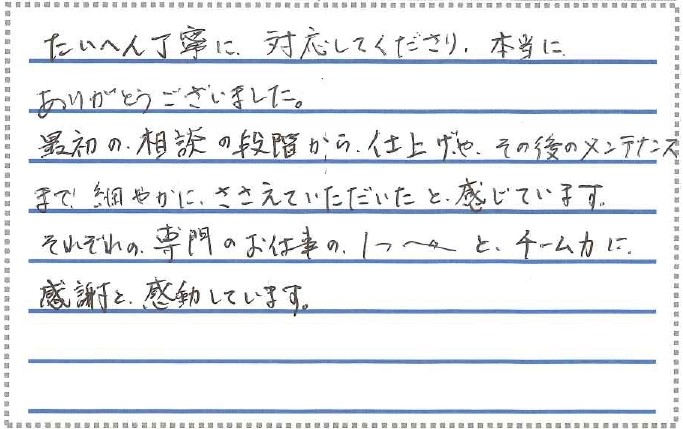 たいへん丁寧に、対応してくださり、本当に
ありがとうございました。
最初の、相談の段階から、仕上げや、その後のメンテナンス
まで、細やかに、ささえていただいたと、感じています。
それぞれの、専門のお仕事の、1つ1つと、チーム力に、
感謝と、感動しています。